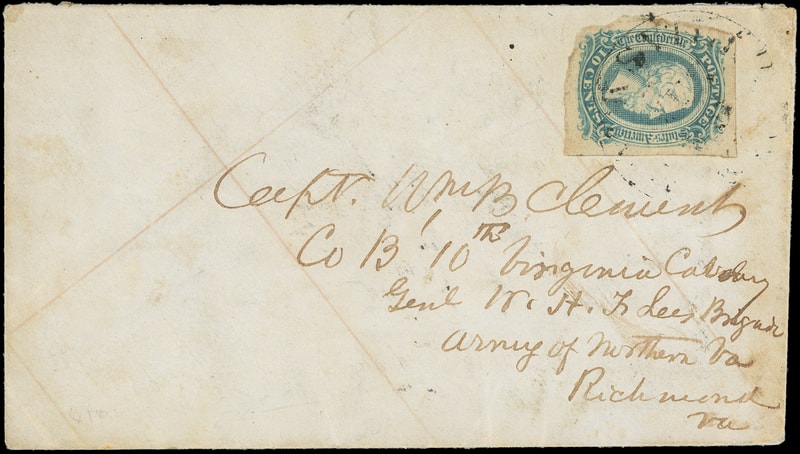 The Confederate
States of America
POSTAGE
TEN CENTS
Capt. Wm B Clement
Co B 10th Virginia Cavalry
Genl W. H. F. Lees Brigade
Army of Northern Va
Richmond
Va